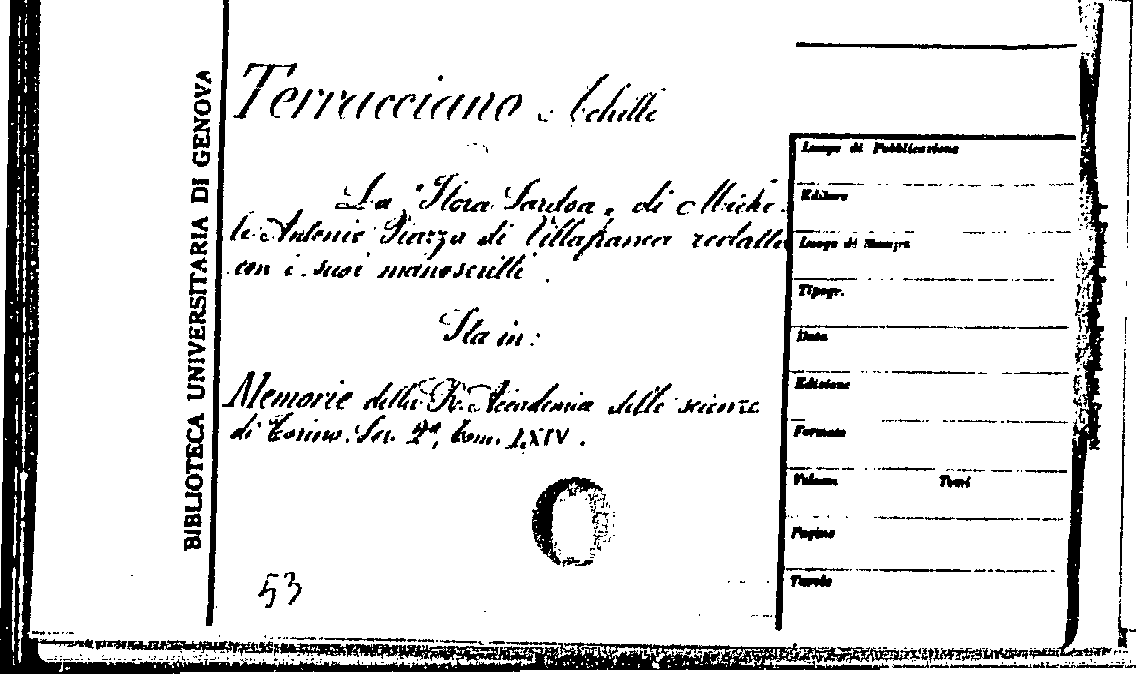 BIBLIOTECA UNIVERSITARIA DI GENOVA
Terracciano Achille
La "Flora Sardoa„ di Miche-
le Antonio Piazza di Villafranca redatta
con i suoi manoscritti.
Sta in:
Memorie della R. Accademia delle scienze
di Torino. Ser. 2ª, tom. LXIV.
53
Luogo di Pubblicazione
Editore
Luogo di Stampa
Tipogr.
Data
Edizione
Formato
Volumi Tomi
Pagine
Tavole